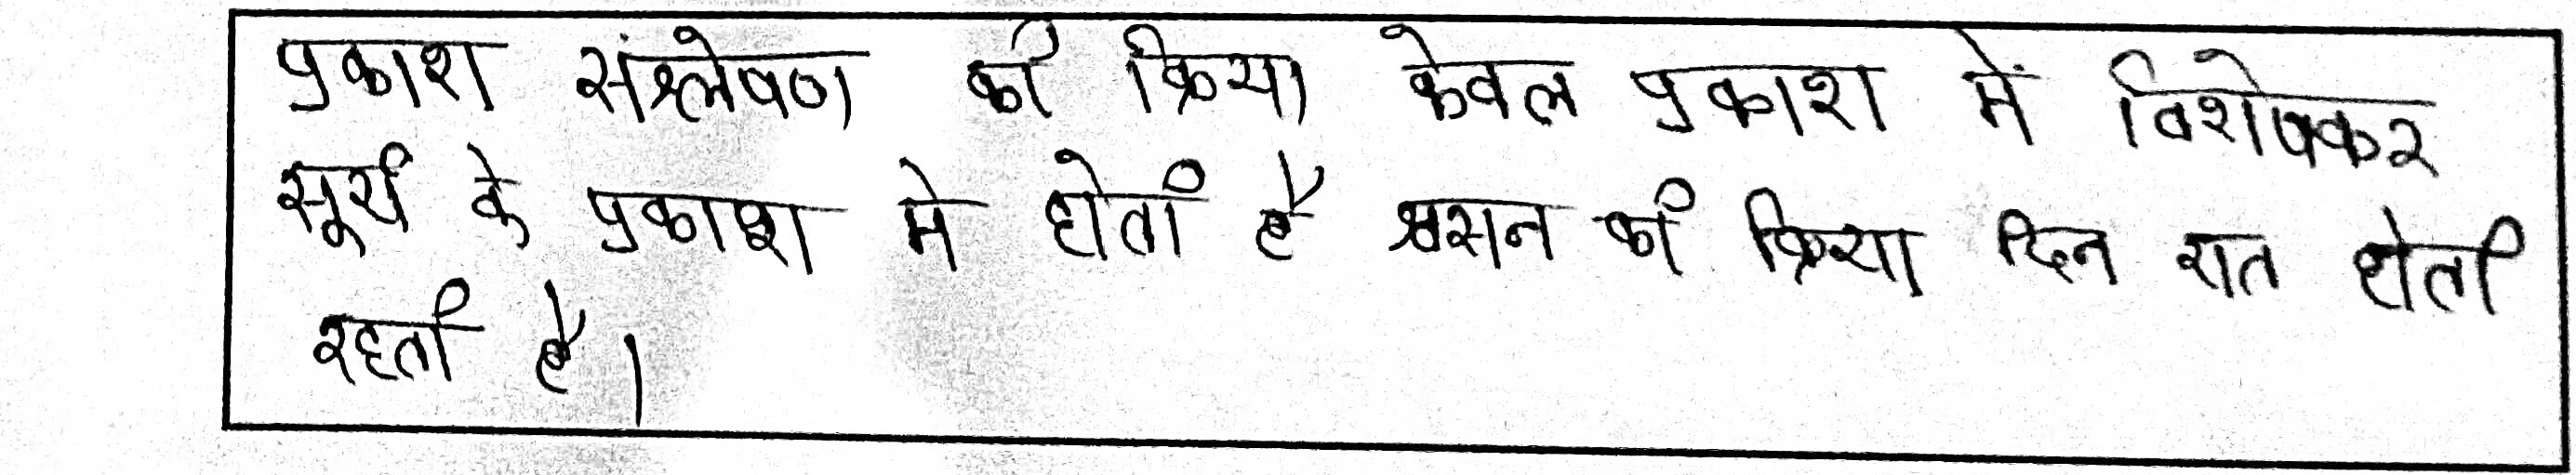 प्रकाश संश्लेषण की क्रिया केवल प्रकाश में विशेषकर
सूर्य के प्रकाश मे होती है श्वसन की क्रिया दिन रात होती
रहती है।